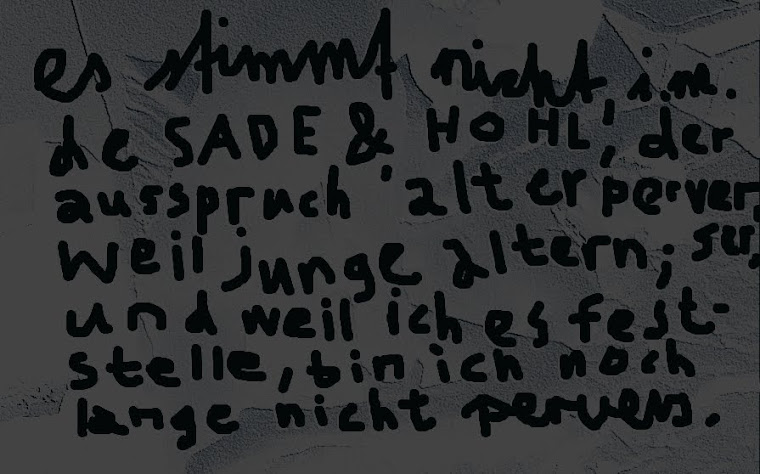 es stimmt nicht, i.m.
de SADE & HOHL, der
ausspruch 'alt er perver,
weil junge altern; ser,
und weil ich es fest-
stelle, bin ich noch
lange nicht pervers.